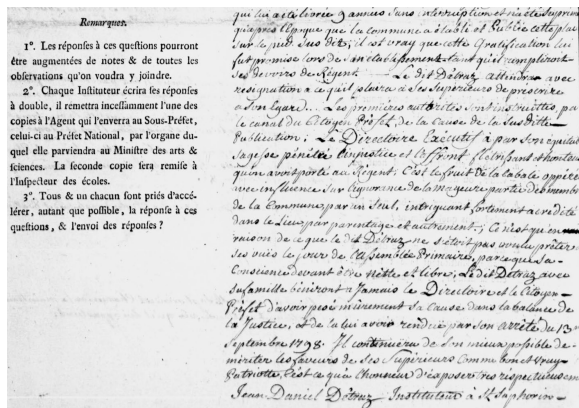 Remarques.
1°. Les réponses à ces questions pourront
être augmentées de notes & de toutes les
observations qu'on voudra y joindre.
2°. Chaque Instituteur écrira ses réponses
à double, il remettra incessamment l'une des
copies à l'Agent qui l'enverra au Sous-Préfet,
celui-ci au Préfet National, par l'organe du-
quel elle parviendra au Ministre des arts &
sciences. La seconde copie sera remise à
l'Inspecteur des écoles.
3°. Tous & un chacun sont priés d'accé-
lérer, autant que possible, la réponse à ces
questions, & l'envoi des réponses ?
qui lui a été livrée 9 années sans interruption et n'a été
qu'après l'époque que la commune a établi et Publié cette place
sur le pied sus dit; il est vray que cette Gratification lui
fut promise lors de son établissement tant qu'il rempliroit
ses devoirs de Régent. — Le dit Détraz attendra avec
resignation ce qu'il plaira à ses Supérieurs de prescrire
à son égard. Les premières autorités sont instruittes, par
le canal du Citoyen Préfet, de la cause de la Susditte
Publication; Le Directoire Exécutif à par son équitable
sagesse pénétré l'injustice et l'affront flétrissant et honteux
qu'on avoit porté au Régent; C'est le fruit de la cabale
avec influence sur l'ignorance de la majeure partie des membres
de la Commune par un Seul, intriguant fortement acrédité
dans le Lieu par parentage et autrement; Ce n'est qu'en
raison de ce que le dit Détraz ne s'étoit pas voulu prêter à
ses vues le jour de l'Assemblée Primaire, parce que sa
Consience devant être nette et libre; Le dit Détraz avec
sa famille béniront à Jamais le Directoire et le Citoyen
Préfet d'avoir pesé mûrement sa Cause dans la balance de
la Justice, et de la lui avoir rendue par son arrêté du 13e
Septembre 1798. Il continuera de son mieux possible de
mériter les faveurs de ses Supérieurs Comme bon et Vray
Patriotte, C'est ce qu'a l'honneur d'exposer très respectueusement
Jean Daniel Détraz Instituteur à St Saphorin